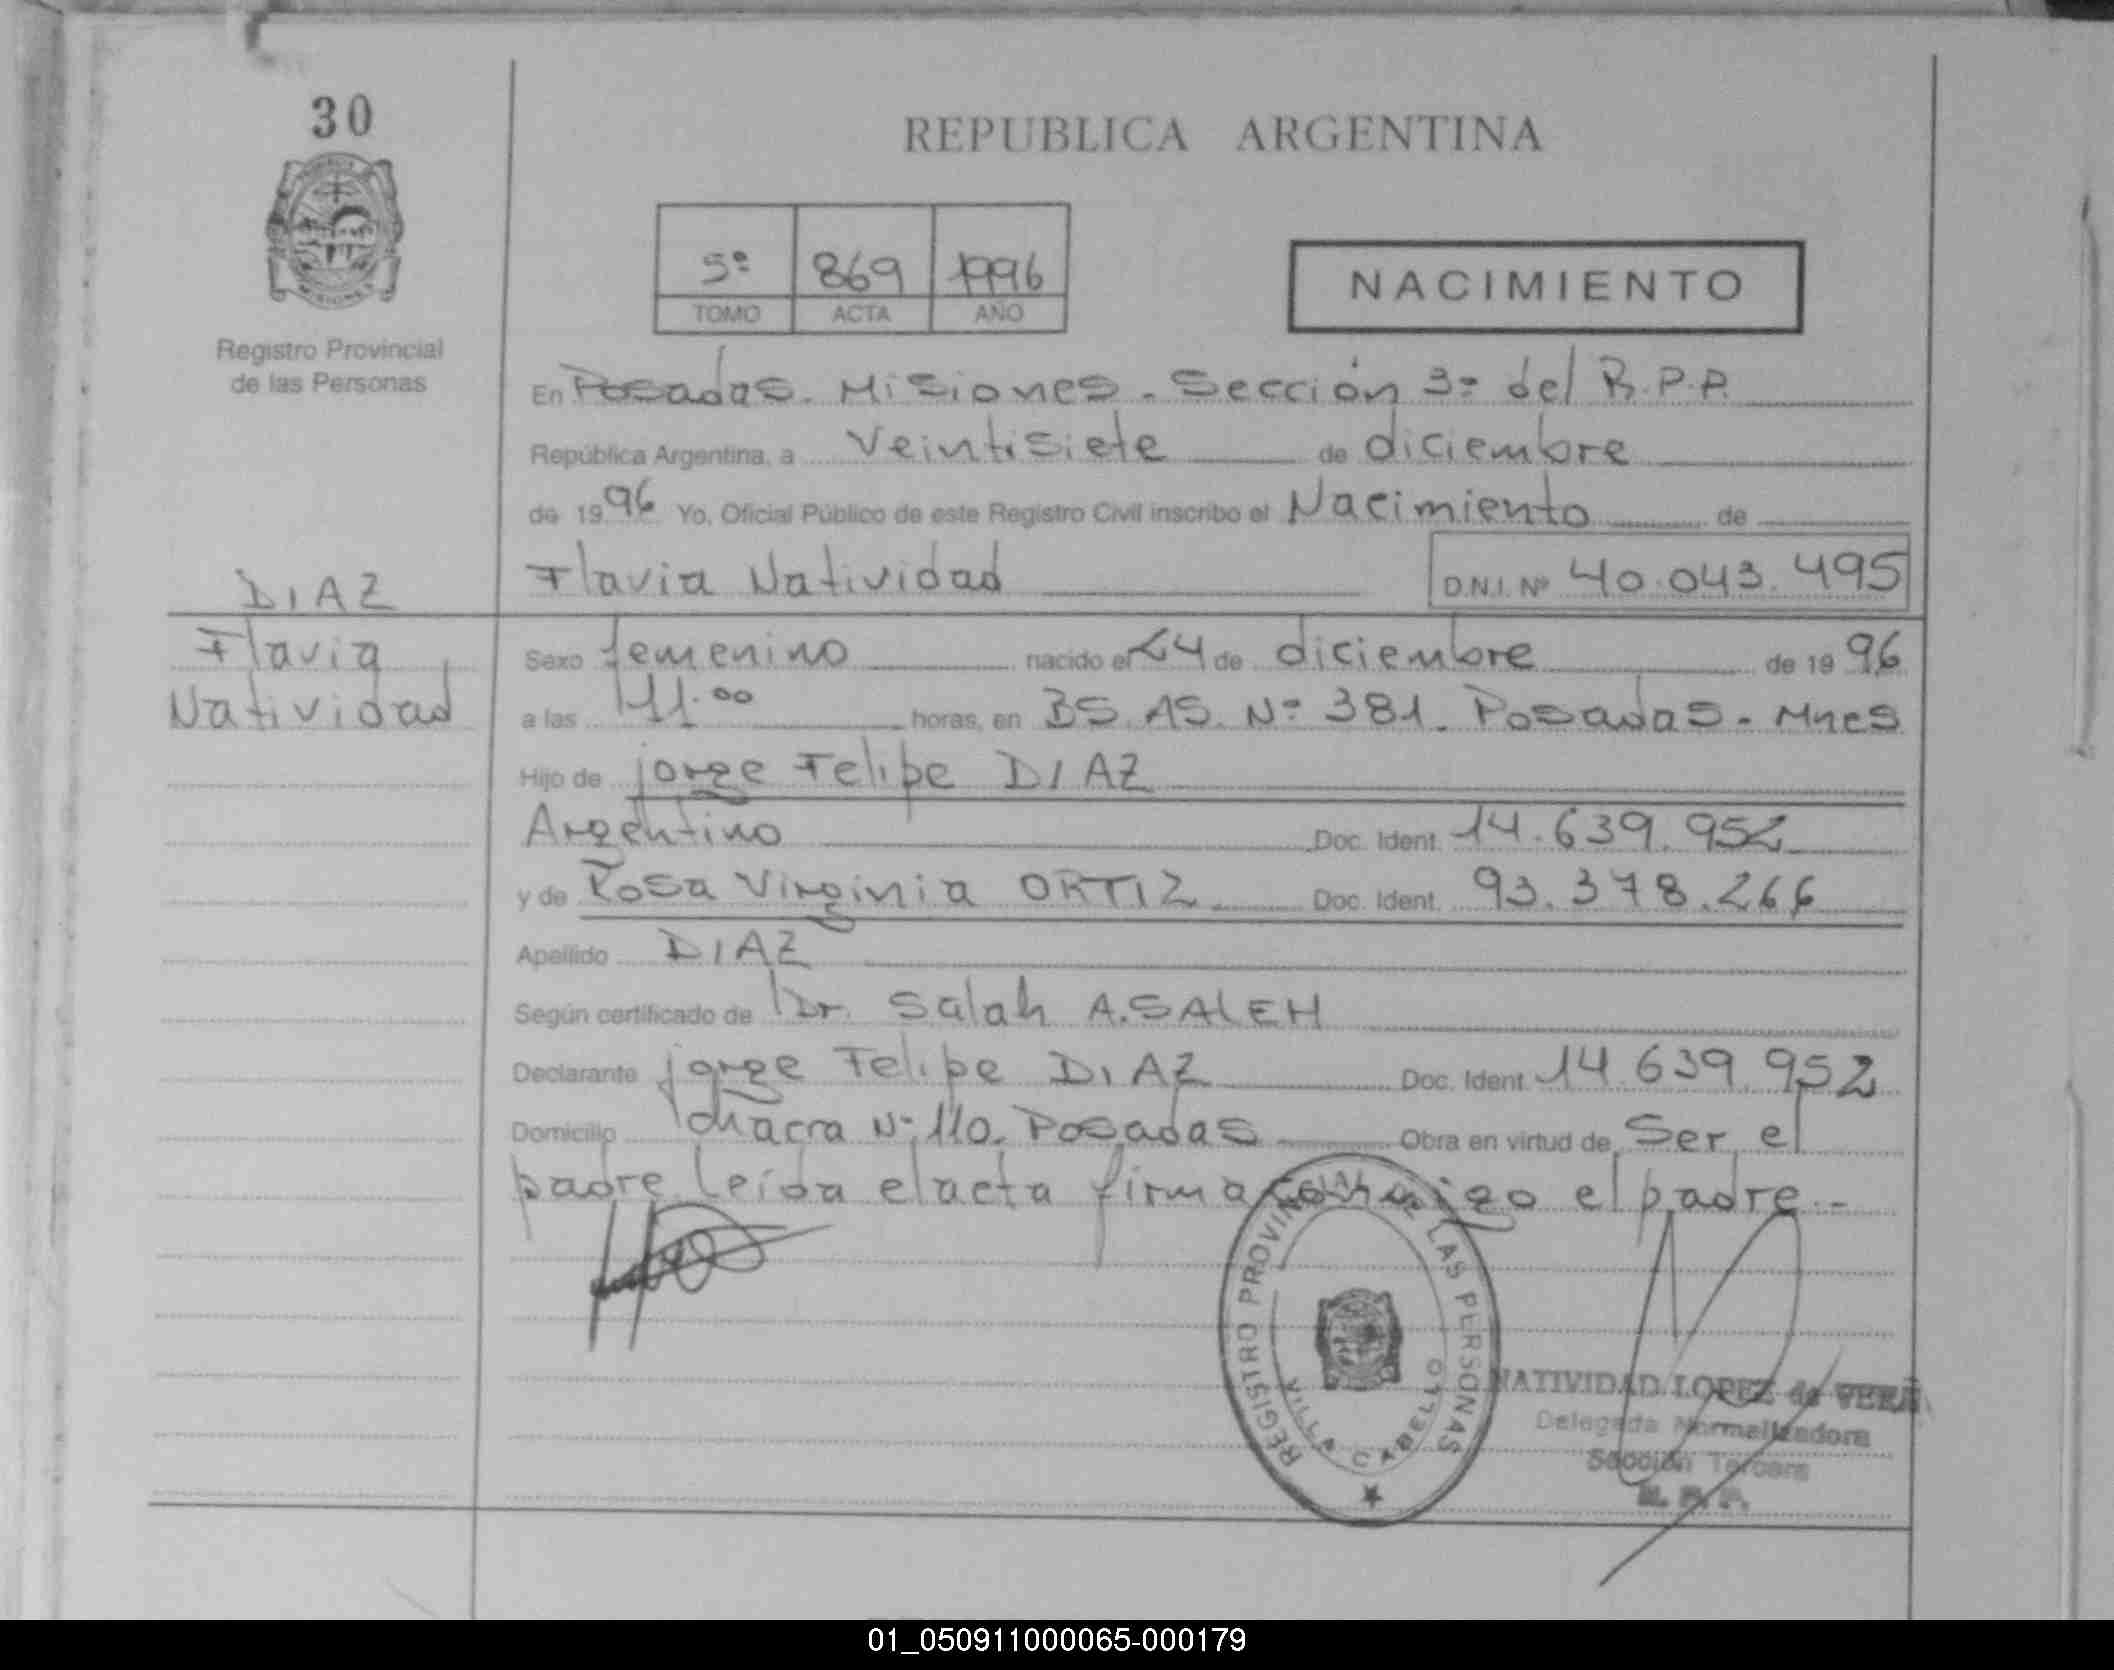 30
REPUBLICA ARGENTINA
5º 869 1996
TOMO ACTA AÑO
NACIMIENTO
Registro Provincial
de las Personas
En Posadas. Misiones. Sección 3º del R.P.P.
República Argentina, a veintisiete de diciembre
de 1996 Yo, Oficial Público de este Registro Civil inscribo el Nacimiento de
Flavia Natividad D.N.I. Nº 40.043.495
DIAZ
Flavia
Natividad
Sexo femenino nacido el 24 de diciembre de 1996
a las 11.00 horas, en BS. AS. Nº 381. Posadas - Mnes
Hijo de jorge Felipe DIAZ
Argentino Doc. Ident. 14.639.952
y de Rosa Virginia ORTIZ Doc. Ident. 93.378.266
Apellido DIAZ
Según certificado de Dr. Salah A. SALEH
Declarante jorge Felipe DIAZ Doc. Ident. 14.639.952
Domicilio chacra Nº 110. Posadas Obra en virtud de Ser el
padre. Leída el acta firma conmigo el padre.-
REGISTRO PROVINCIAL DE LAS PERSONAS
VILLA CABELLO
NATIVIDAD LOPEZ de VERA
Delegada Normalizadora
Sección Tercera
R. P. P.
01_050911000065-000179